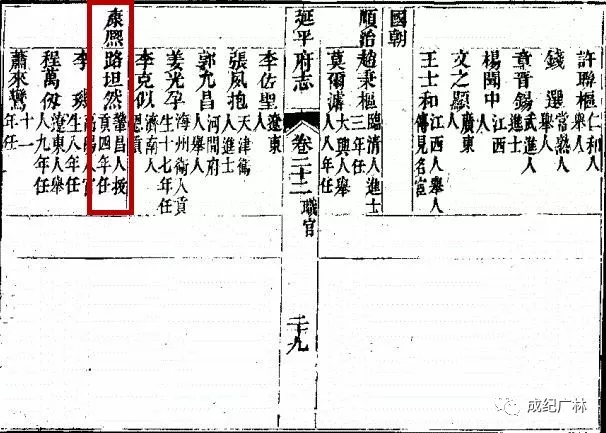 許聯樞仁和人舉人
錢選常熟人舉人
章晉錫武進人進士
楊聞中江西人
文之顯廣東人
王士和江西人舉人傳見名宦
國朝
順治趙秉樞臨清人進士三年任
莫爾大興人舉人八年任
延平府志
卷二十二
職官
二十九
李佐聖遼東人
張鳳抱天津衛人進士
郭允昌河間府人舉人
姜光孕海州衛人貢生十七年任
李克似濟南人恩貢
康熙路坦然鞏昌人拔貢四年任
李高陽人官生八年任
程萬遼東人舉人九年任
蕭來鸞十一年任
成纪广林